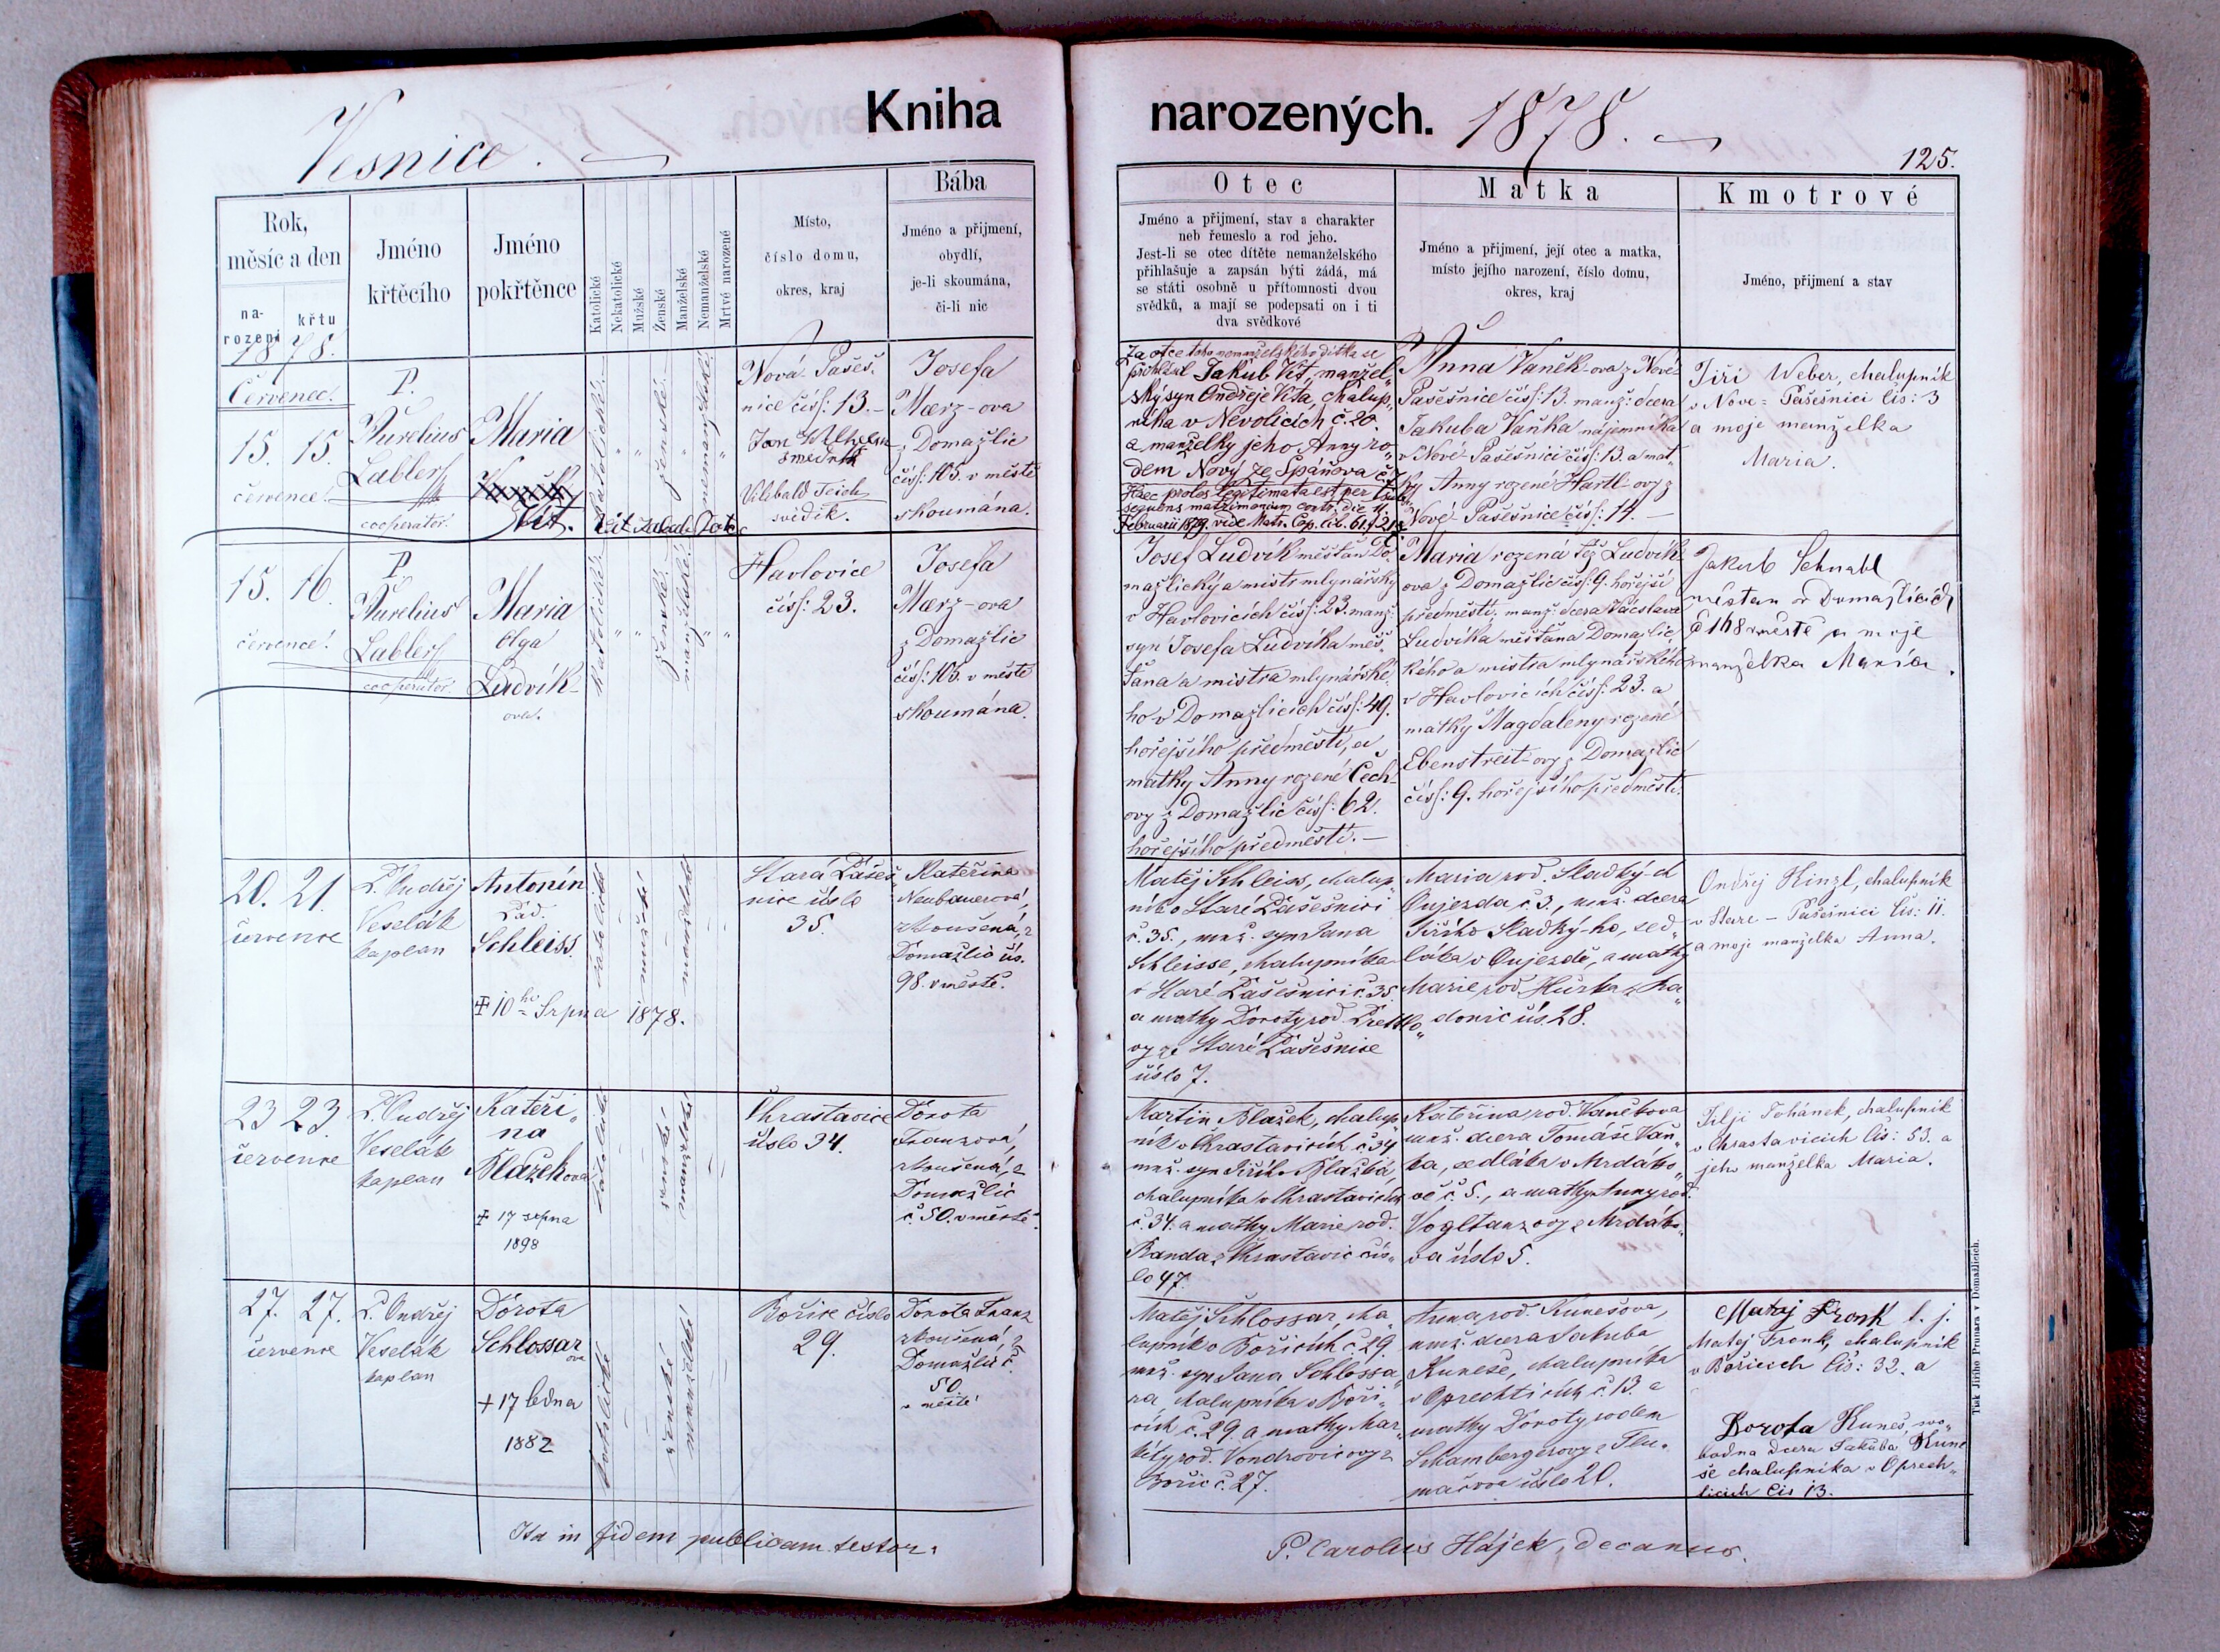 Vesnice.
Kniha
narozených.
1878.
125.
Rok,
měsíc a den
na-
rození
křtu
Jméno
křtěcího
Jméno
pokřtěnce
Katolické
Nekatolické
Mužské
Ženské
Manželské
Nemanželské
Mrtvé narozené
Místo,
číslo domu,
okres, kraj
Bába
Jméno a přijmení,
obydlí,
je-li skoumána,
či-li nic
Otec
Jméno a přijmení, stav a charakter
neb řemeslo a rod jeho.
Jest-li se otec dítěte nemanželského
přihlašuje a zapsán býti žádá, má
se státi osobně u přítomnosti dvou
svědků, a mají se podepsati on i ti
dva svědkové
Matka
Jméno a přijmení, její otec a matka,
místo jejího narození, číslo domu,
okres, kraj
Kmotrové
Jméno, přijmení a stav
1878.
Červenec.
15. 15.
července.
P.
Aurelius
Labler
cooperator.
Maria
Vít.
katolické
ženské
nemanželské
Nová Pašeš-
nice čís: 13.
Jan Wilhelm
Vilibald Teich
svědik.
Josefa
Mærz-ova
z Domažlic
čís: 105. v městě
skoumána.
Za otce toho nemanželského dítka se
přihlásil Jakub Vít, manžel-
ský syn Ondřeje Víta, chalup-
níka v Nevolicích č. 20.
a manželky jeho Anny ro-
dem Nový ze Spáňova č. 7
Haec proles legitimata est per sub-
sequens matrimonium contr. die 11.
Februarii 1879. vide Matr. Cop. lib. 61. f 21
Anna Vaněk-ova z Nové
Pašešnice čís: 13. manž: dcera
Jakuba Vaňka nájemníka
v Nové Pašešnici čís: 13. a mat-
ky Anny rozené Hartl-ovy z
Nové Pašešnice čís: 14.
Jiří Weber, chalupník
v Nove-Pašešnici čis: 3
a moje manželka
Maria.
15. 16.
července.
P.
Aurelius
Labler
cooperator.
Maria
Olga
Ludvík-
ova.
katolické
ženské
manželské
Havlovice
čís: 23.
Josefa
Mærz-ova
z Domažlic
čís: 105. v městě
skoumána.
Josef Ludvík měšťan Do-
mažlický a mistr mlynářský
v Havlovicích čís: 23. manž:
syn Josefa Ludvíka měš-
ťana a mistra mlynářské-
ho v Domažlicích čís: 49.
hořejšího předměstí, a
matky Anny rozené Čech-
ovy z Domažlic čís: 62.
hořejšího předměstí.
Maria rozená též Ludvík-
ova z Domažlic čís: 9. hořejší
předměstí, manž: dcera Václava
Ludvíka měšťana Domažlic-
kého a mistra mlynářského
v Havlovicích čís: 23. a
matky Magdaleny rozené
Ebenstreit-ovy z Domažlic
čís: 9. hořejšího předměstí.
Jakub Schnabl
měštan v Domažlicích
č 148 v městě a moje
manželka Maria.
20. 21.
července
P. Ondřej
Veselák
kaplan
Antonín
Lad.
Schleiss.
✠ 10ho Srpna 1878.
katolické
mužské
manželské
Stará Pašeš-
nice číslo
35.
Kateřina
Neubauerová,
zkoušená, z
Domažlic čís.
98. v městě.
Matěj Schleiss, chalup-
ník v Staré Pašešnici
č. 35., manž. syn Jana
Schleisse, chalupníka
v Staré Pašešnici č. 35.
a matky Doroty rod.
ovy ze Staré Pašešnice
číslo 7.
Maria rod. Sladký-d
Oujezda č 3., manž. dcera
Jiřího Sladký-ho, sed-
láka v Oujezdě, a matky
Marie rod. Hůrka z Ha-
donic čís. 28.
Ondřej Kinzl, chalupník
v Stare-Pašešnici čis: 11.
a moje manželka Anna.
23 23.
července
P. Ondřej
Veselák
kaplan
Kateři-
na
Blažekova
✠ 17 srpna
1898
katolické
ženské
manželské
Chrastavice
číslo 34.
Dorota
Franzová,
zkoušená, z
Domažlic
č. 50. v městě.
Martin Blažek, chalup-
ník v Chrastavicích č 34
manž. syn Jiřího Blažka,
chalupníka v Chrastavicích
č. 34. a matky Marie rod.
Randa z Chrastavic čís-
lo 47.
Kateřina rod. Vaňkova
manž. dcera Tomáše Vaň-
ka, sedláka v Mrdáko-
vě č. 5., a matky Anny rod.
Vogltanzovy z Mrdáko-
va číslo 5.
Filip Johánek, chalupník
v Chrastavicich čis: 53. a
jeho manželka Maria.
27. 27.
července
P. Ondřej
Veselák
kaplan
Dorota
Schlossar
ova
+ 17 ledna
1882
katolické
ženské
manželské
Bořice číslo
29.
Dorota Franz
zkoušená, z
Domažlic č.
50.
v městě
Matěj Schlossar, cha-
lupník v Bořicích č. 29.
manž. syn Jana Schlossa-
ra, chalupníka v Boři-
cích č. 29. a matky Mar-
kéty rod. Vondrovicovy z
Bořic č. 27.
Anna rod. Kunešova,
manž. dcera Jakuba
Kuneše, chalupníka
v Oprechticích č. 13. a
matky Doroty rodem
Schambergerovy z Tlu-
mačova číslo 20.
Matej Fronk t. j.
Matěj Fronk, chalupník
v Bořicich čis: 32. a
Dorota Kuneš, svo-
bodna dcera Jakuba Kune
še chalupníka v Oprech-
ticich čis 13.
Ita in fidem publicam testor.
P. Carolus Hájek, decanus.
Tisk Jiřího Prunara v Domažlicích.